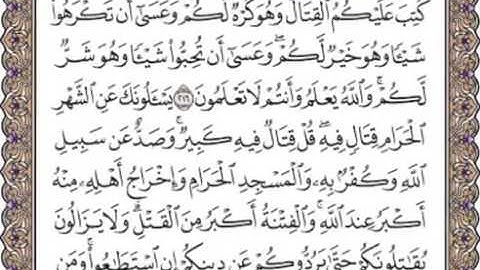 كُتِبَ عَلَيْكُمُ ٱلْقِتَالُ وَهُوَ كُرْهٌ لَّكُمْ وَعَسَىٰٓ أَن تَكْرَهُوا۟
شَيْـًٔا وَهُوَ خَيْرٌ لَّكُمْ ۖ وَعَسَىٰٓ أَن تُحِبُّوا۟ شَيْـًٔا وَهُوَ شَرٌّ
لَّكُمْ ۗ وَٱللَّهُ يَعْلَمُ وَأَنتُمْ لَا تَعْلَمُونَ ٢١٦ يَسْـَٔلُونَكَ عَنِ ٱلشَّهْرِ
ٱلْحَرَامِ قِتَالٍ فِيهِ ۖ قُلْ قِتَالٌ فِيهِ كَبِيرٌ ۖ وَصَدٌّ عَن سَبِيلِ
ٱللَّهِ وَكُفْرٌۢ بِهِۦ وَٱلْمَسْجِدِ ٱلْحَرَامِ وَإِخْرَاجُ أَهْلِهِۦ مِنْهُ
أَكْبَرُ عِندَ ٱللَّهِ ۚ وَٱلْفِتْنَةُ أَكْبَرُ مِنَ ٱلْقَتْلِ ۗ وَلَا يَزَالُونَ
يُقَـٰتِلُونَكُمْ حَتَّىٰ يَرُدُّوكُمْ عَن دِينِكُمْ إِنِ ٱسْتَطَـٰعُوا۟ ۚ وَمَن